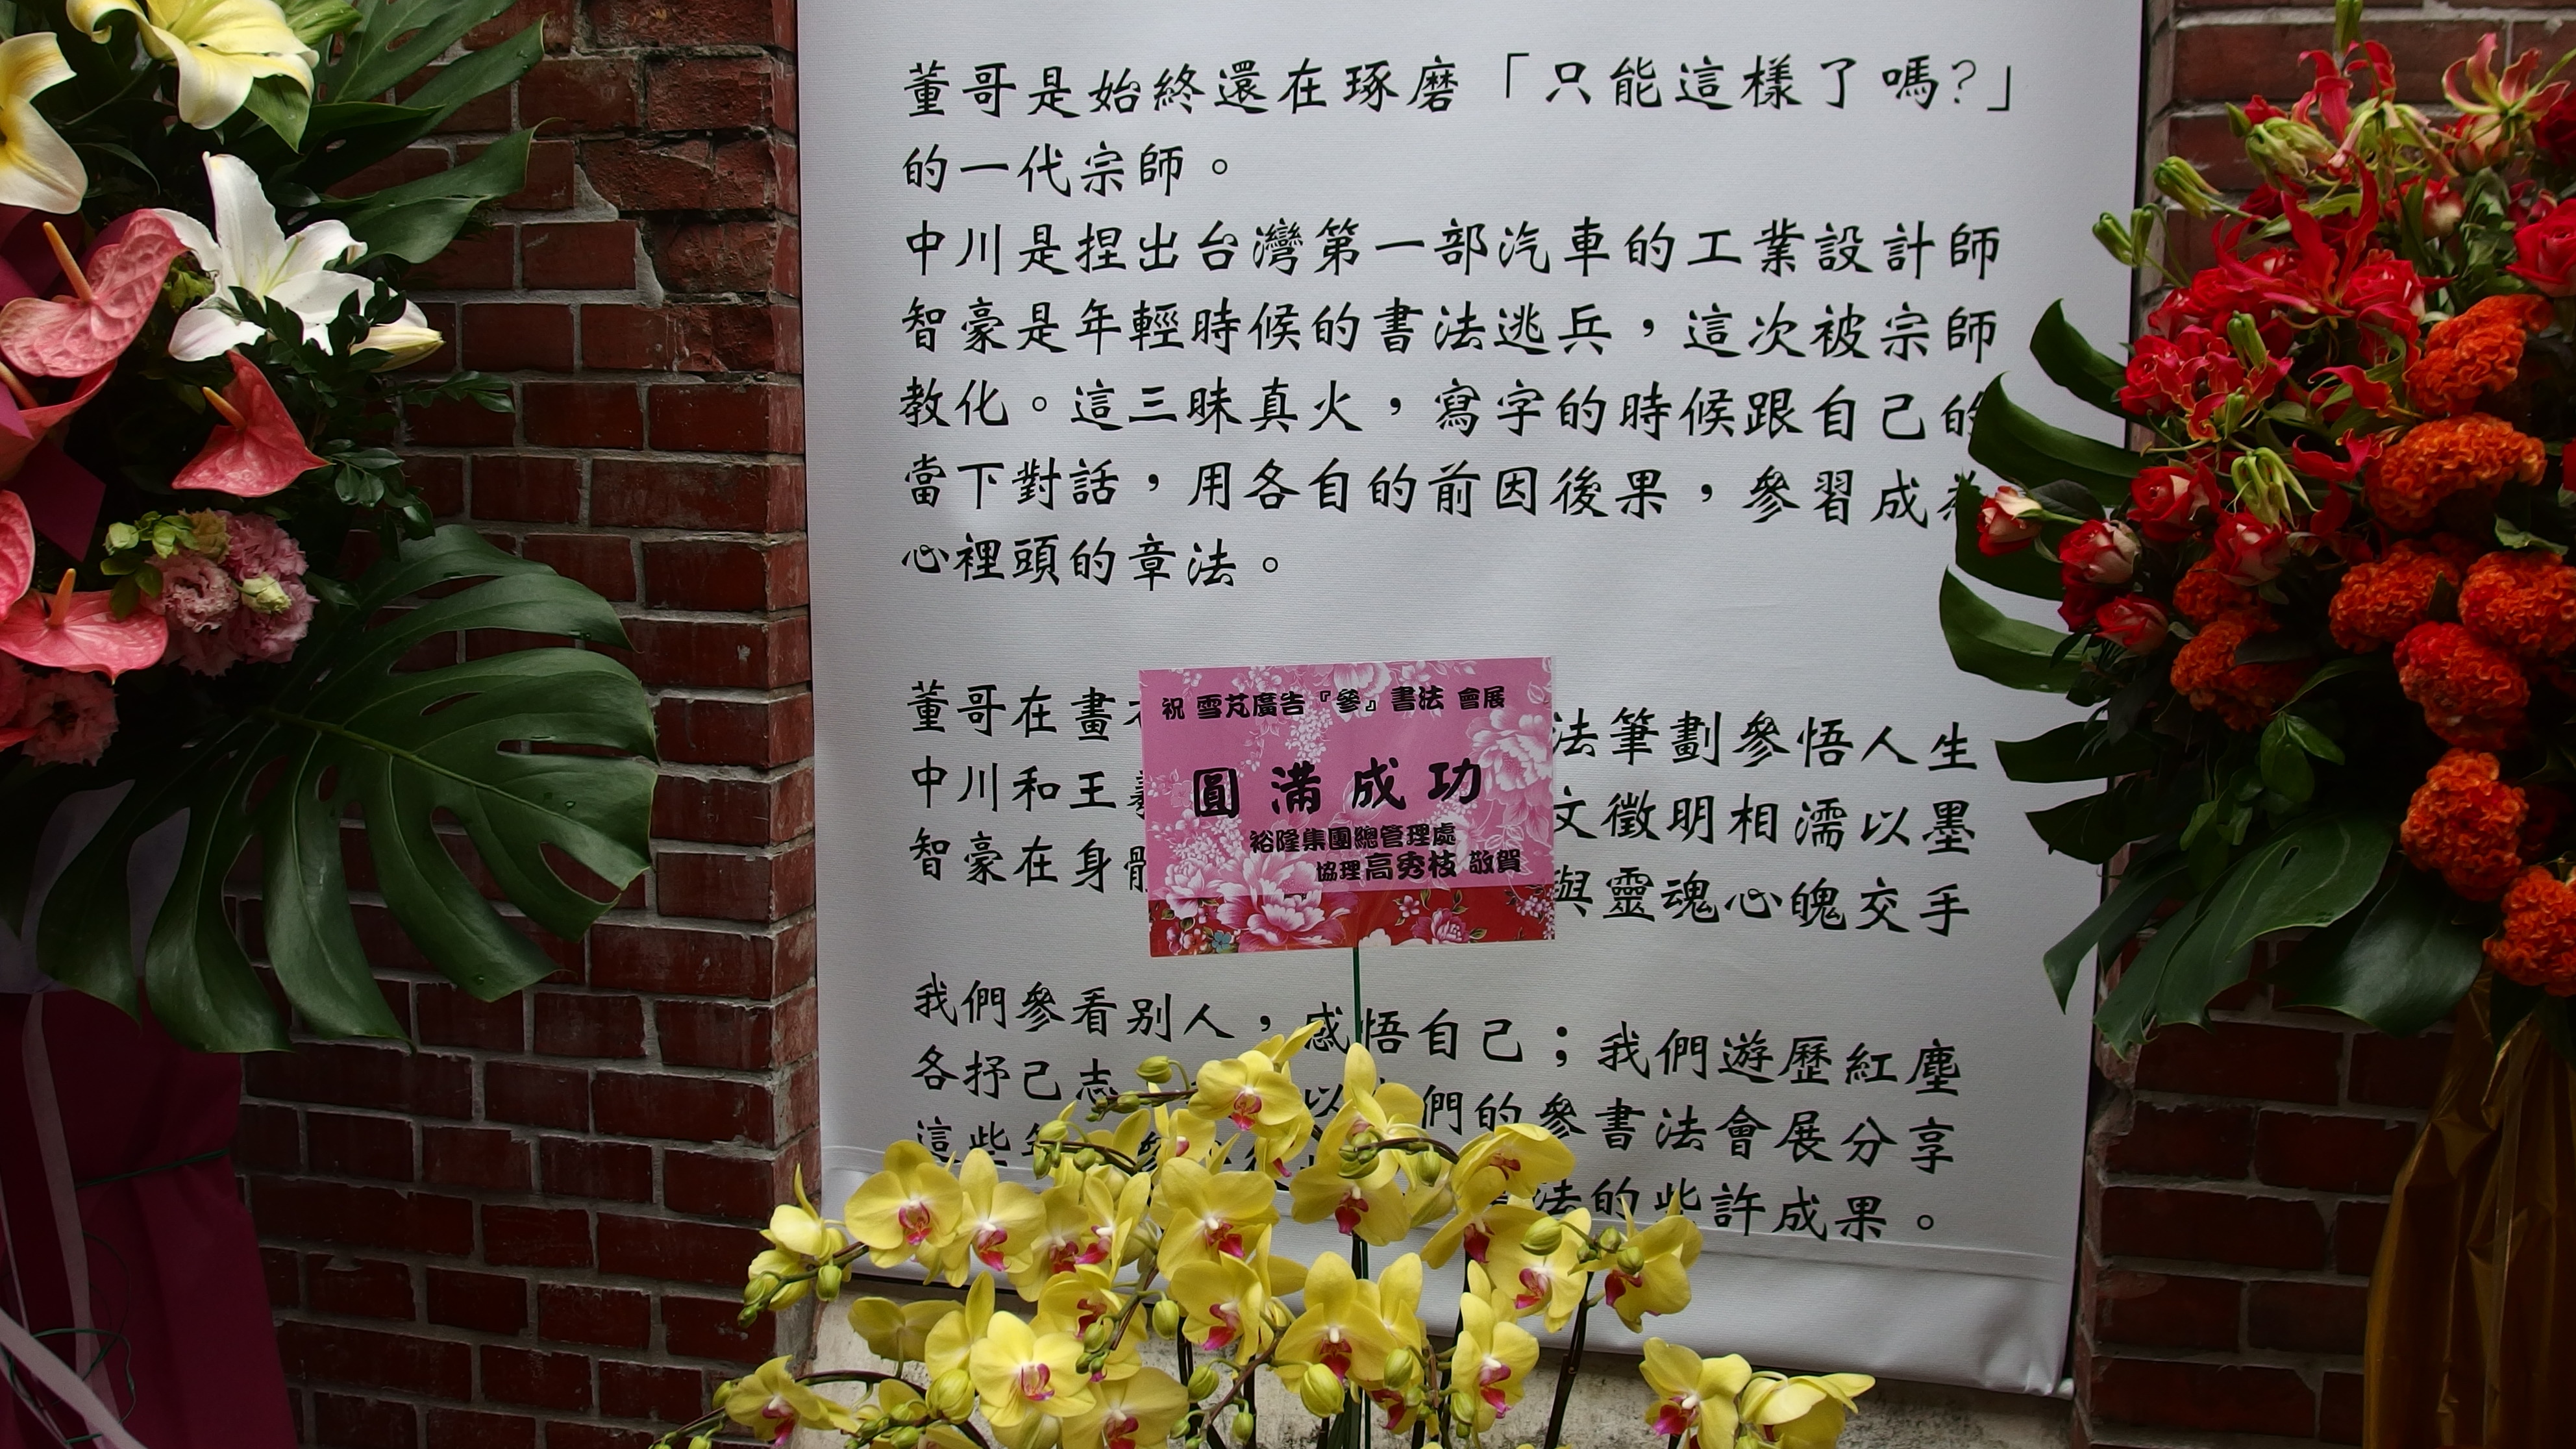 董哥是始終還在琢磨「只能這樣了嗎?」
的一代宗師。
中川是捏出台灣第一部汽車的工業設計師
智豪是年輕時候的書法逃兵，這次被宗師
教化。這三昧真火，寫字的時候跟自己的
當下對話，用各自的前因後果，參習成
心裡頭的章法。
董哥在畫 法筆劃參悟人生
中川和王 文徵明相濡以墨
智豪在身體 與靈魂心魄交手
祝 雪芃廣告『參』書法 會展
圓滿成功
裕隆集團總管理處
協理高秀枝 敬賀
我們參看別人，感悟自己；我們遊歷紅塵
各抒己志 以 們的參書法會展分享
這些年 法的些許成果。